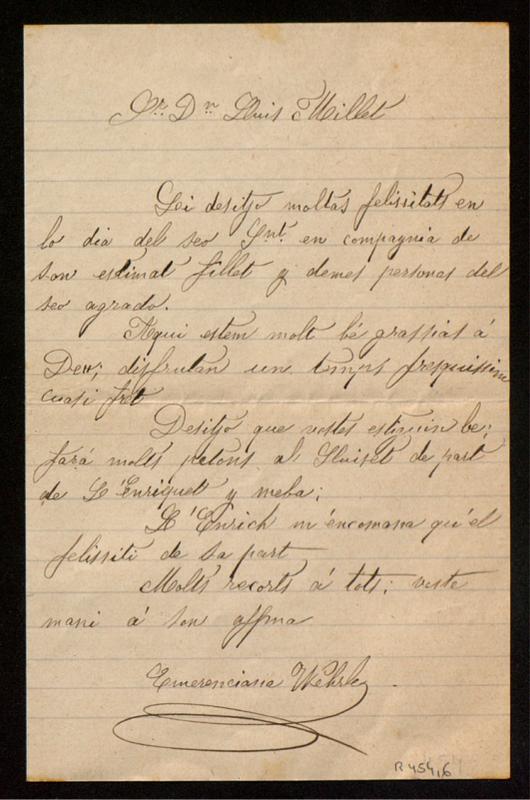 Sr. Dn. Lluis Millet
Li desitjo moltas felissitats en
lo dia del seo Snt. en compagnia de
son estimat fillet y demes personas del
seo agrado.
Aqui estem molt bé grassias á
Deu; disfrutan un temps fresquissim
cuasi fret
Desitjo que vostes estiguin be;
fará molts petons al Lluiset de part
de L'Enriquet y meba;
L'Enrich m'encomana qu'el
felissiti de sa part
Molts recorts á tots; voste
mani á son affma
Emerenciana Wehrle
R 454,6